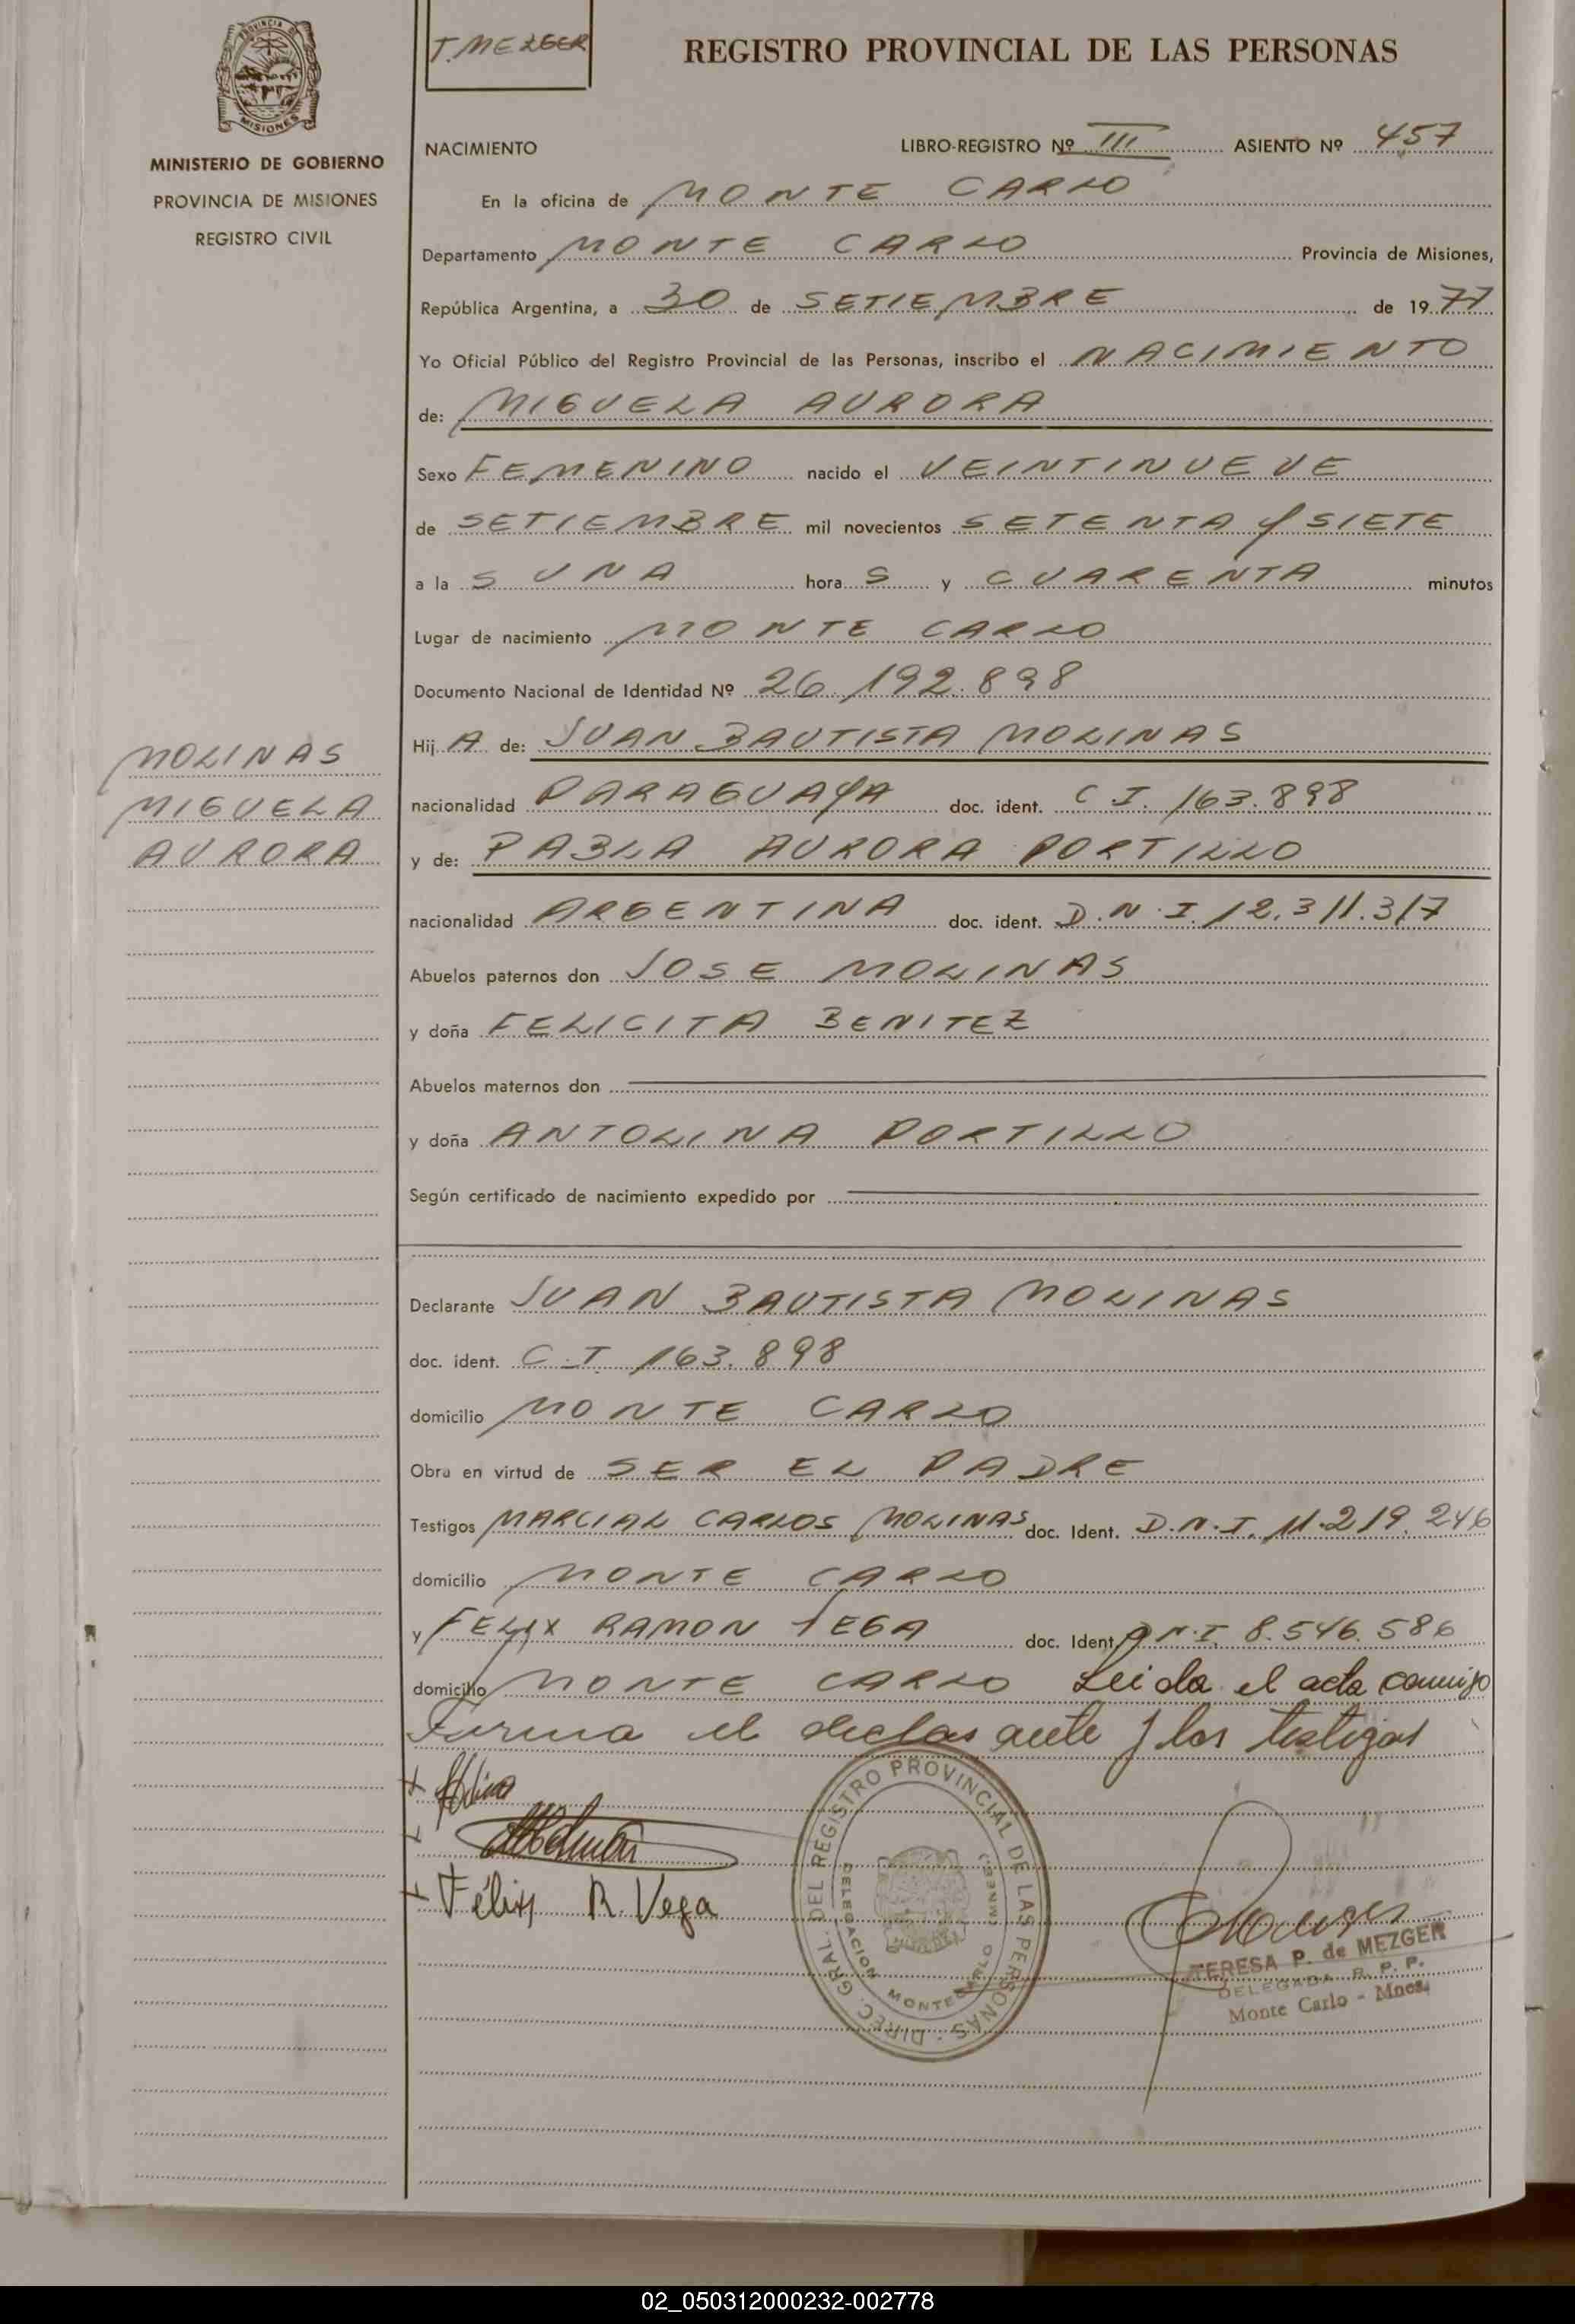 PROVINCIA DE
MISIONES
MINISTERIO DE GOBIERNO
PROVINCIA DE MISIONES
REGISTRO CIVIL
MOLINAS
MIGUELA
AURORA
T. MEZGER
REGISTRO PROVINCIAL DE LAS PERSONAS
NACIMIENTO LIBRO-REGISTRO Nº III ASIENTO Nº 457
En la oficina de MONTE CARLO
Departamento MONTE CARLO Provincia de Misiones,
República Argentina, a 30 de SETIEMBRE de 1977
Yo Oficial Público del Registro Provincial de las Personas, inscribo el NACIMIENTO
de: MIGUELA AURORA
Sexo FEMENINO nacido el VEINTINUEVE
de SETIEMBRE mil novecientos SETENTA y SIETE
a la S UNA hora S y CUARENTA minutos
Lugar de nacimiento MONTE CARLO
Documento Nacional de Identidad Nº 26.192.898
Hij A de: JUAN BAUTISTA MOLINAS
nacionalidad PARAGUAYA doc. ident. C I. 163.898
y de: PABLA AURORA PORTILLO
nacionalidad ARGENTINA doc. ident. D.N.I. 12.311.317
Abuelos paternos don JOSE MOLINAS
y doña FELICITA BENITEZ
Abuelos maternos don
y doña ANTOLINA PORTILLO
Según certificado de nacimiento expedido por
Declarante JUAN BAUTISTA MOLINAS
doc. ident. C.I. 163.898
domicilio MONTE CARLO
Obra en virtud de SER EL PADRE
Testigos MARCIAL CARLOS MOLINAS doc. Ident. D.N.I. 11.219.246
domicilio MONTE CARLO
y FELIX RAMON VEGA doc. Ident. D.N.I. 8.546.586
domicilio MONTE CARLO Leida el acta comigo
Firma el declarante y los testigos
Félix R. Vega
DIREC. GRAL. DEL REGISTRO PROVINCIAL DE LAS PERSONAS
DELEGACION MONTECARLO (MNES.)
TERESA P. de MEZGER
DELEGADA R. P. P.
Monte Carlo - Mnes.
02_050312000232-002778